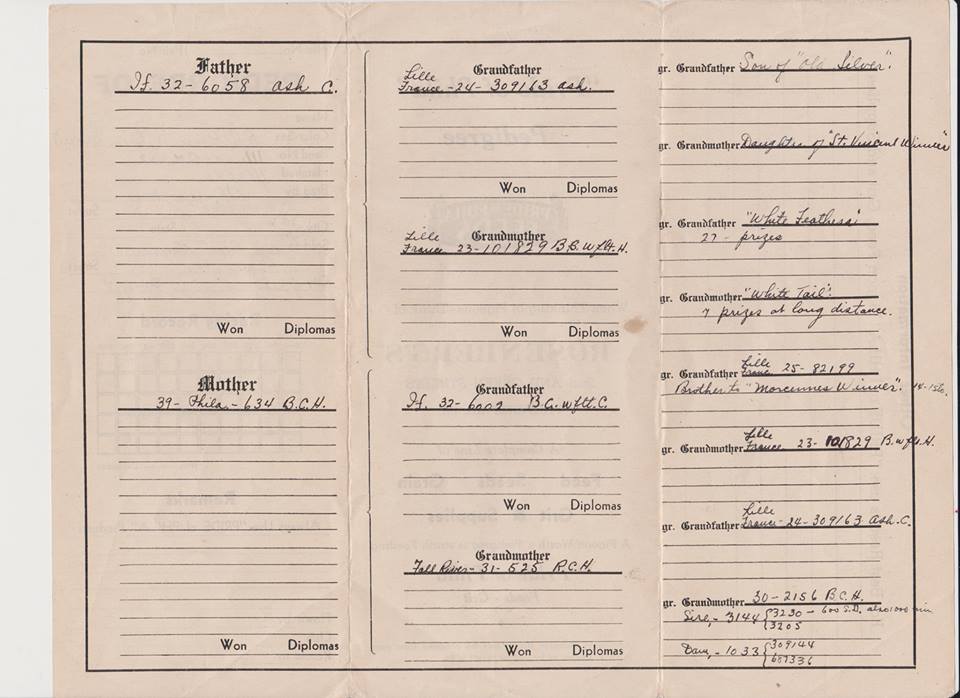 Father
If. 32-6058 Ash C.
Won Diplomas
Mother
39- Phila.- 634 B.C.H.
Won Diplomas
Grandfather
Lille
France -24- 309163 ash.
Won Diplomas
Grandmother
Lille
France 23-101829 B.C. wflt. H.
Grandfather
If. 32-6002 B.C. wflt. C.
Won Diplomas
Grandmother
Fall River- 31- 525 R.C.H.
Won Diplomas
gr. Grandfather Son of "Old Silver".
gr. Grandmother Daughter of "St. Vincent Winner"
gr. Grandfather "White Feathers"
27 - prizes
gr. Grandmother "White Tail".
7 prizes at long distance.
Lille
gr. Grandfather France 25- 82199
Brother to "Morcennes Winner". 14-1sts.
Lille
gr. Grandmother France 23- 101829 B. wflt. H.
Lille
gr. Grandfather France -24-309163 Ash. C.
gr. Grandmother 30-2156 B.C.H.
Sire,- 3144 { 3230 - 600 S.D. also 1000 mi
3205
Dam,- 1033 { 309144
687336